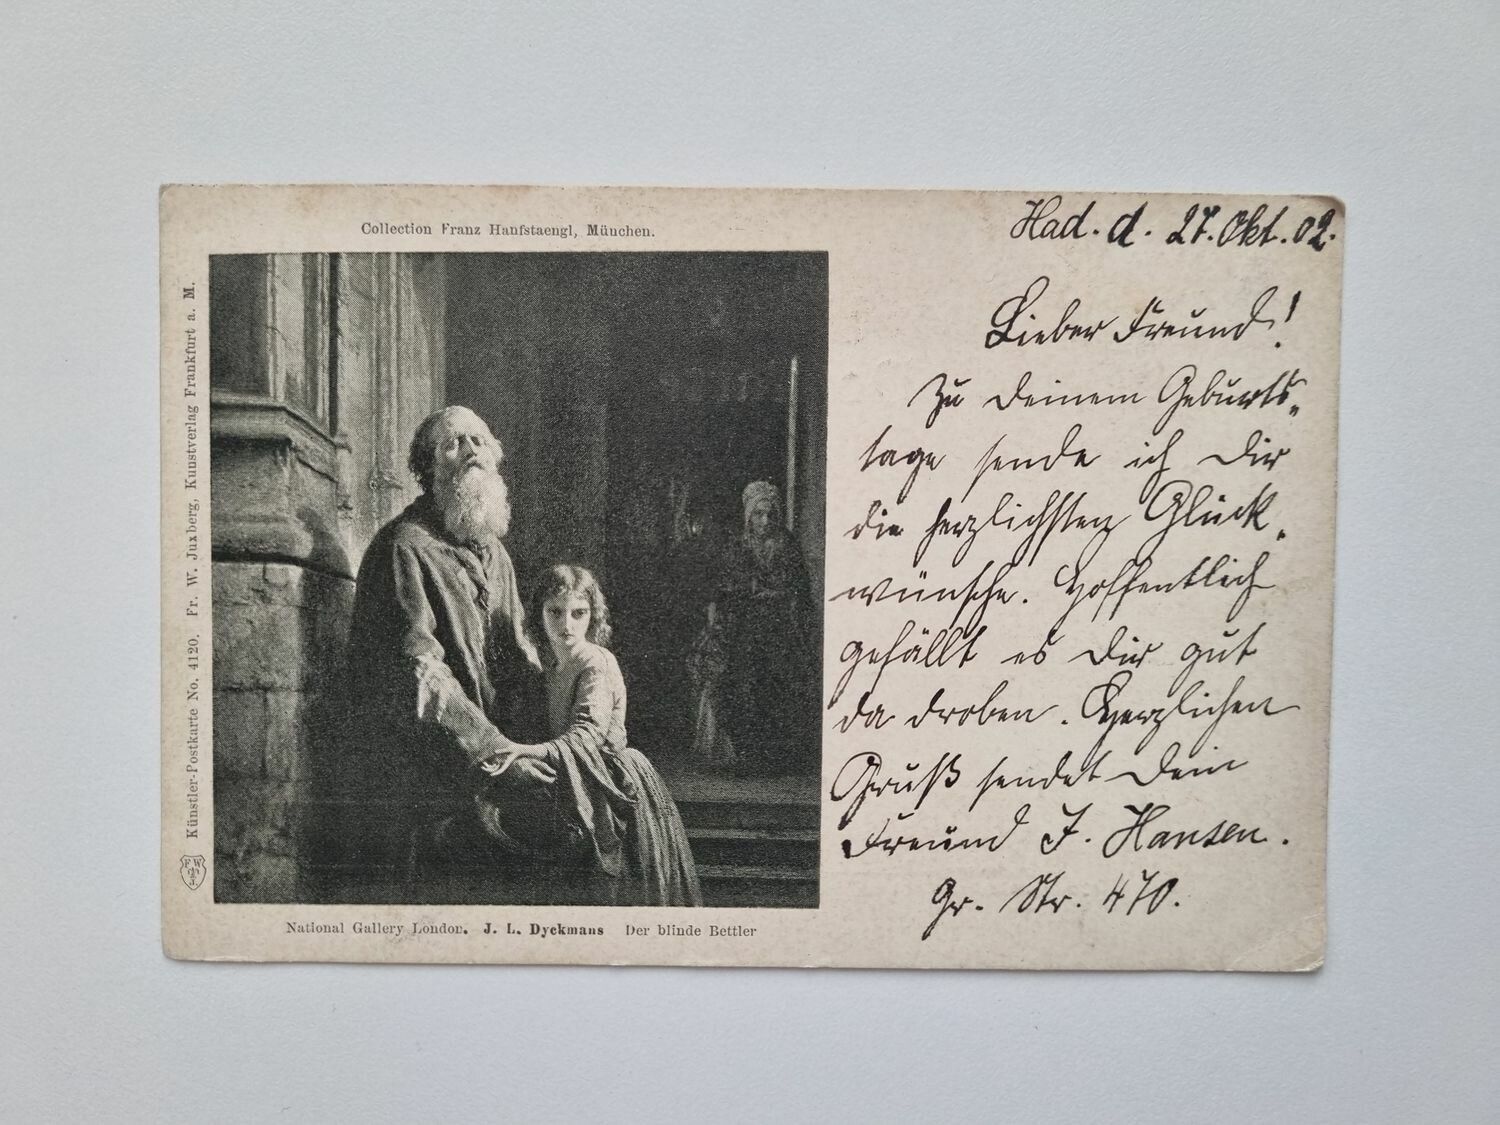 Collection Franz Hanfstaengl, München.
Künstler-Postkarte No. 4120. Fr. W. Juxberg, Kunstverlag Frankfurt a. M.
F W
National Gallery London. J. L. Dyckmans Der blinde Bettler
Had. d. 27. Okt. 02.
Lieber Freund!
Zu Deinem Geburts-
tage sende ich Dir
die herzlichsten Glück-
wünsche. Hoffentlich
gefällt es Dir gut
da droben. Herzlichen
Gruß sendet Dein
Freund J. Hansen.
Gr. Str. 470.